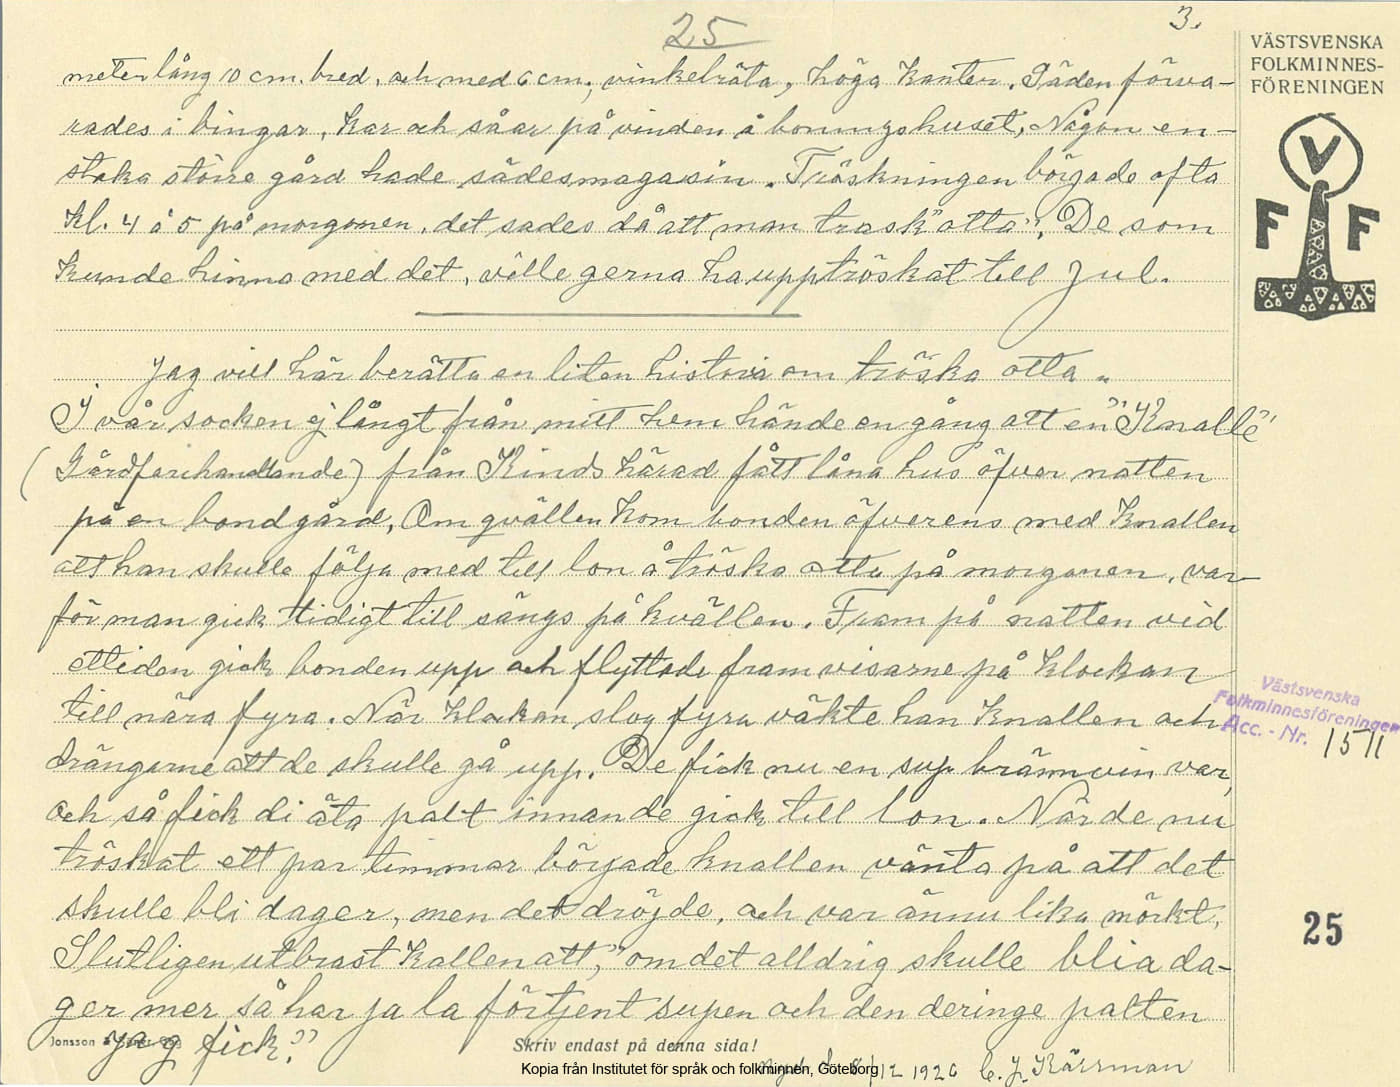 25
3.
VÄSTSVENSKA
FOLKMINNES-
FÖRENINGEN
V
F F
meter lång 10 cm. bred, och med 6 cm, vinkelräta, höga kanter. Säden förva-
rades i bingar, kar och såar på vinden å boningshuset, Någon en-
staka större gård hade sädesmagasin. Tröskningen började ofta
kl. 4 à 5 på morgonen, det sades då att man trösk "otta", De som
kunde hinna med det, ville gerna ha upptröskat till Jul.
Jag vill här berätta en liten historia om tröska otta.
I vår socken ej långt från mitt hem hände en gång att en "Knalle"
(Gårdfarihandlande) från Kinds härad fått låna hus öfver natten
på en bondgård, Om qvällen kom bonden öfverens med Knallen
att han skulle följa med till lon å tröska otta på morgonen, var-
för man gick tidigt till sängs på kvällen. Fram på natten vid
ettiden gick bonden upp och flyttade fram visarne på klockan
till nära fyra. När klockan slog fyra väkte han Knallen och
drängarne att de skulle gå upp. De fick nu en sup brännvin var,
och så fick di äta palt innan de gick till lon. När de nu
tröskat ett par timmar började knallen vänta på att det
skulle bli dager, men det dröjde, och var ännu lika mörkt,
Slutligen utbrast kallen att, "om det alldrig skulle blia da-
ger mer så har ja la förtjent supen och den deringe palten
jag fick."
Västsvenska
Folkminnesföreningen
Acc. - Nr. 1571
25
Jonsson
Skriv endast på denna sida!
Kopia från Institutet för språk och folkminnen, Göteborg
/12 1926 C. J. Kärrman